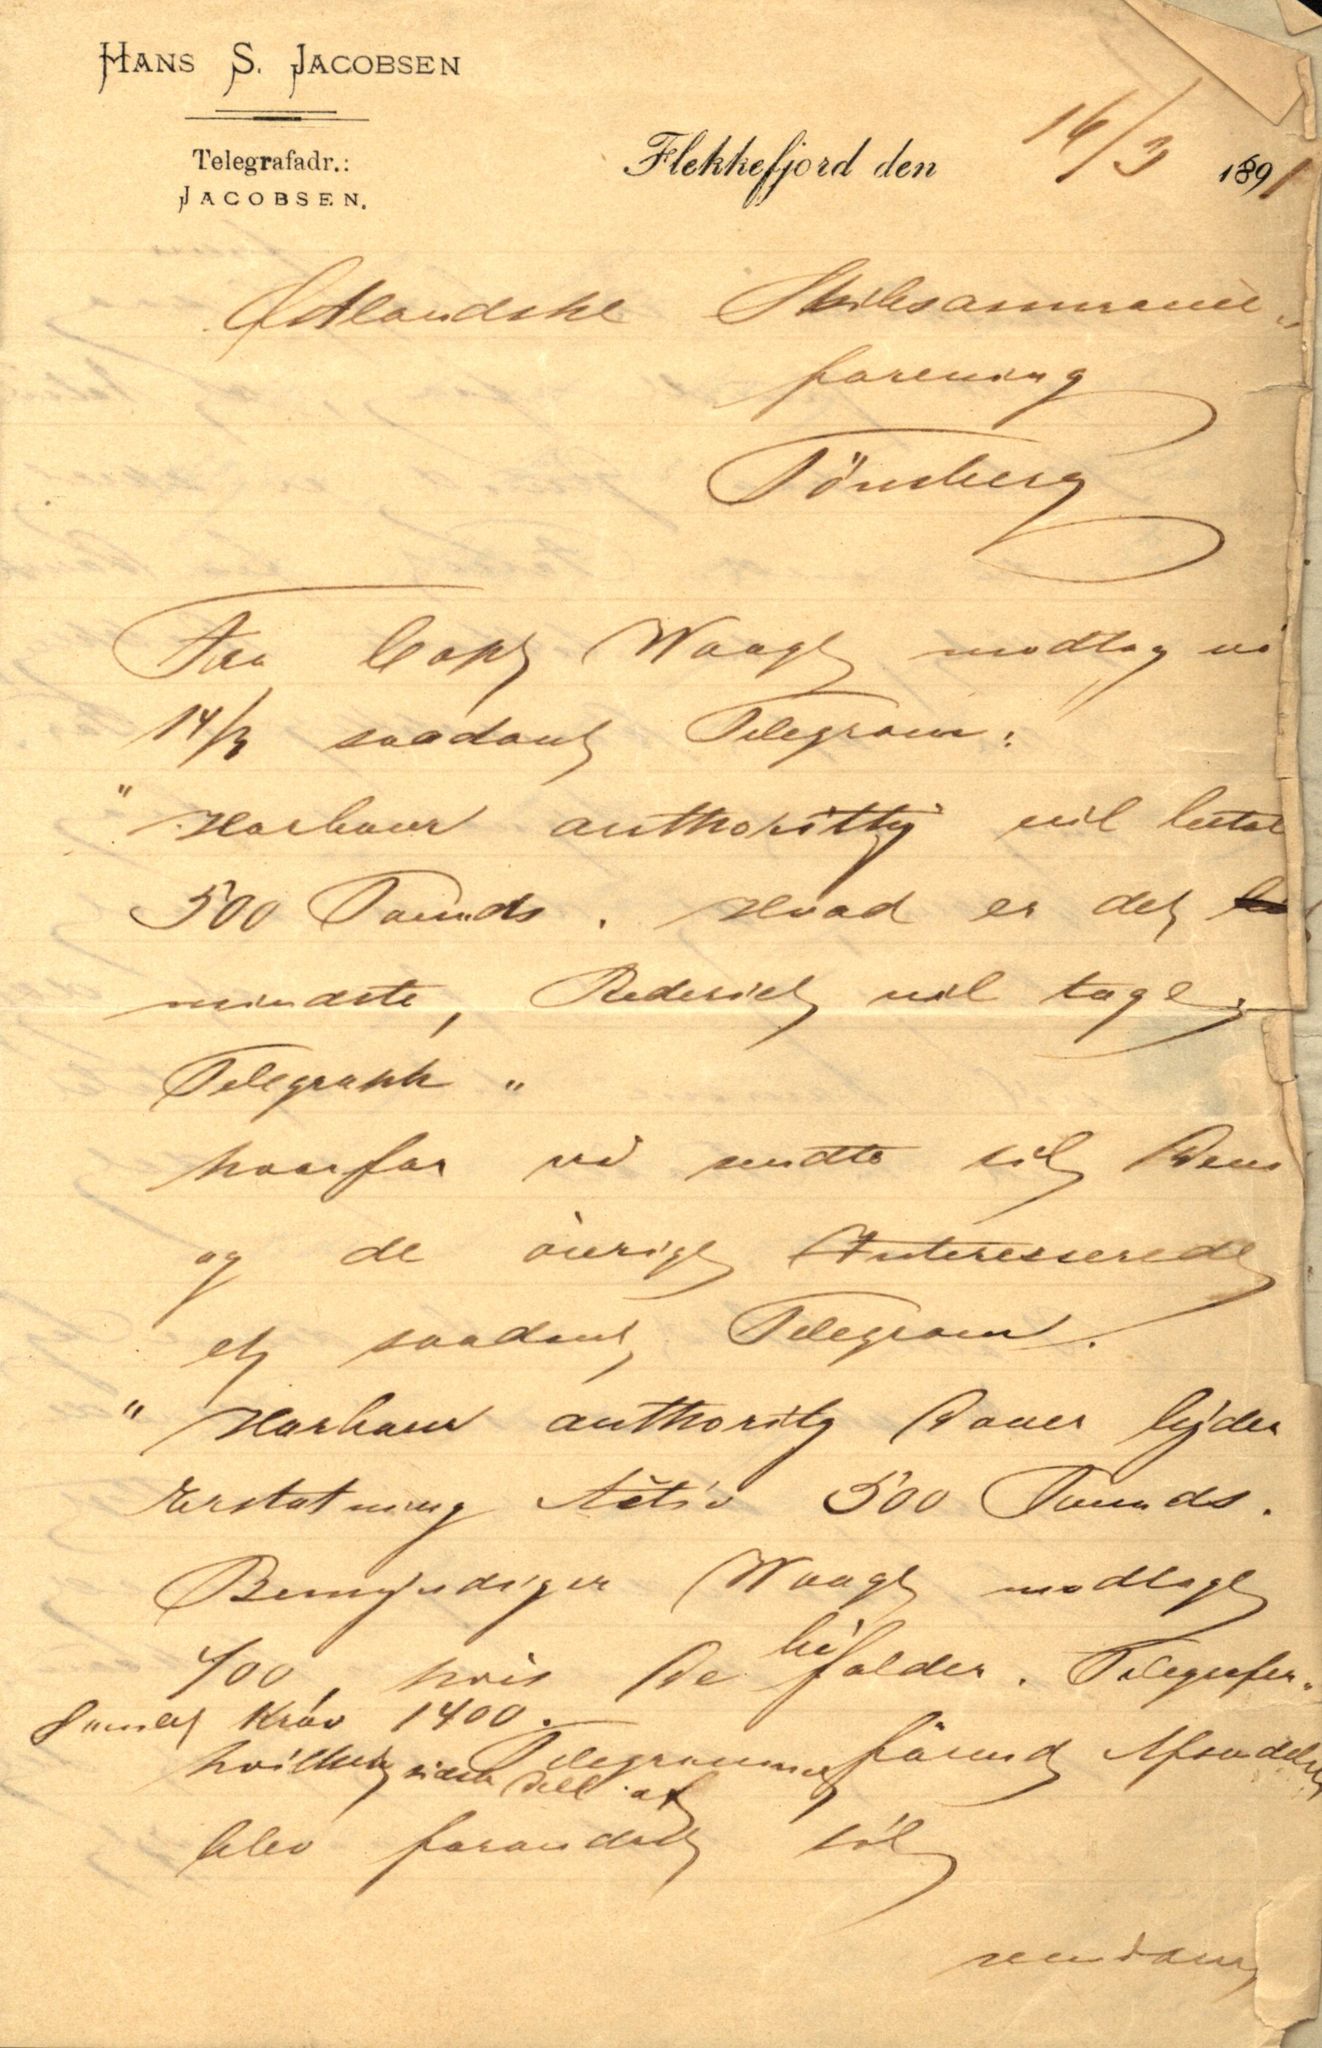 HANS S. JACOBSEN
Telegrafadr.:
JACOBSEN.
Flekkefjord den 16/3 1891
Østlandske Skibsassurance„
forening
Tönsberg
Fra Capt Waage modtog vi
14/3 saadant Telegram:
" Harbour authoritty vil betal
500 Pounds. Hvad er det
mindste, Rederiet vil tage.
Telegraph "
hvorfor vi sendte til Dem
og de övrige Interesserede
et saadant Telegram.
" Harbour authority Dover byder
Erstatning 500 Pounds.
Bemyndiger Waage modtage
400, hvis De bifalder. Telegrafer„
Krav 1400.
hvilket sidste Telegram förend Afsendelse
Deel af
blev forandret til